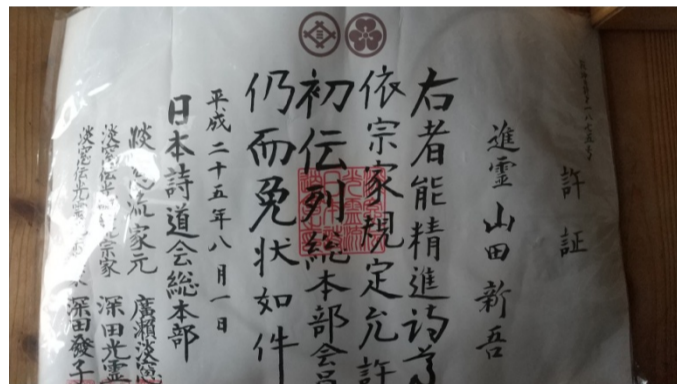 許証
進霊 山田 新吾
右者能精進詩道
依宗家規定允許
初伝列総本部会員
仍而免状如件
平成二十五年八月一日
日本詩道会総本部
淡窓流家元 廣瀬淡窓
淡窓伝光霊流宗家 深田光霊
淡窓伝光霊 深田發子